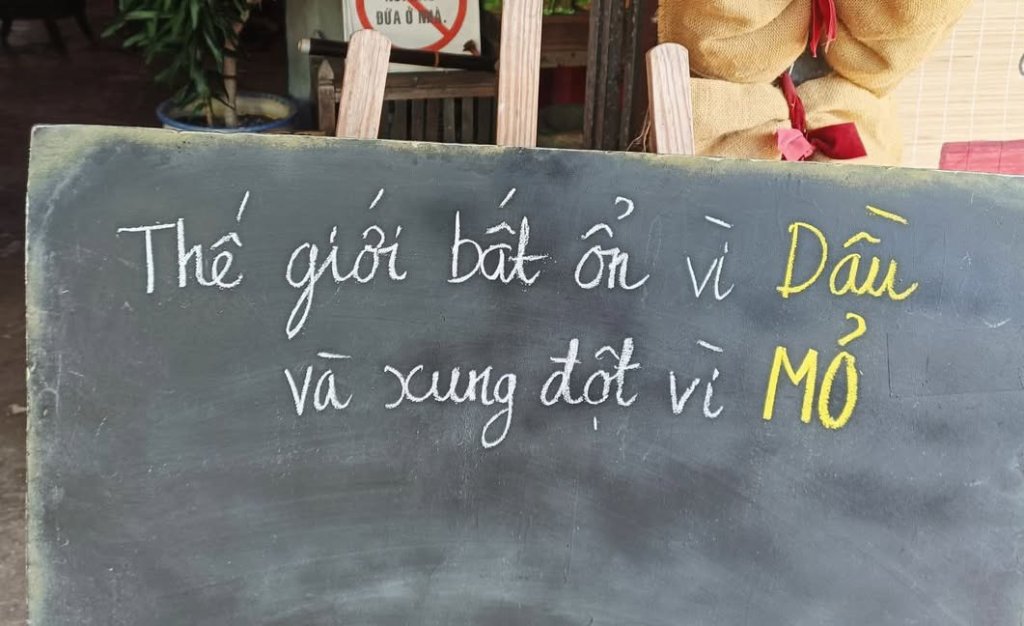 ĐỨA Ở NHÀ.
Thế giới bất ổn vì Dầu
và xung đột vì MỎ